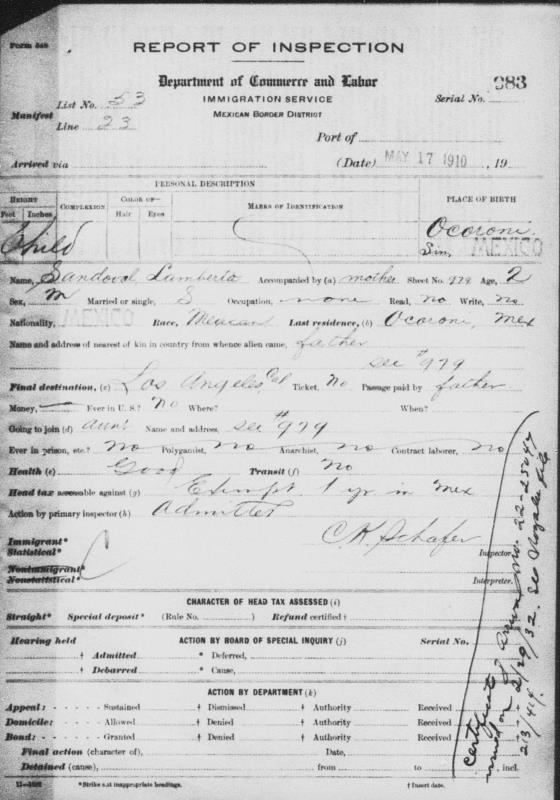 Form 548
REPORT OF INSPECTION
Department of Commerce and Labor
IMMIGRATION SERVICE
MEXICAN BORDER DISTRICT
Serial No. 983
Manifest List No. 53
Line 23
Port of
Arrived via (Date) MAY 17 1910, 19
PERSONAL DESCRIPTION
HEIGHT COMPLEXION COLOR OF— MARKS OF IDENTIFICATION PLACE OF BIRTH
Feet Inches Hair Eyes
Child Ocoroni
Sin, MEXICO
Name, Sandoval Lamberto Accompanied by (a) mother Sheet No. 979 Age, 2
Sex, m Married or single, S Occupation, none Read, no Write, no
Nationality, MEXICO Race, Mexican Last residence, (b) Ocoroni, Mex
Name and address of nearest of kin in country from whence alien came, father
see #979
Final destination, (c) Los Angeles, Cal Ticket, No Passage paid by father
Money, — Ever in U. S.? No Where? When?
Going to join (d) aunt Name and address, see #979
Ever in prison, etc.? No Polygamist, No Anarchist, No Contract laborer, No
Health (e) Good Transit (f) No
Head tax assessable against (g) Exempt 1 yr in Mex
Action by primary inspector (h) Admitted
C. K. Schafer
Immigrant* Inspector.
Statistical*
Nonimmigrant*
Nonstatistical* Interpreter.
CHARACTER OF HEAD TAX ASSESSED (i)
Straight* Special deposit* (Rule No. ) Refund certified †
Hearing held ACTION BY BOARD OF SPECIAL INQUIRY (j) Serial No.
† Admitted * Deferred,
† Debarred * Cause,
ACTION BY DEPARTMENT (k)
Appeal: - - - - - Sustained † Dismissed † Authority Received †
Domicile: - - - - Allowed † Denied † Authority Received †
Bond: - - - - - Granted † Denied † Authority Received †
Final action (character of), Date,
Detained (cause), from to , incl.
*Strike out inappropriate headings. † Insert date.
certificate of arrival No. 22-25047
issued on 2/29/32. See Nogales file
213/414